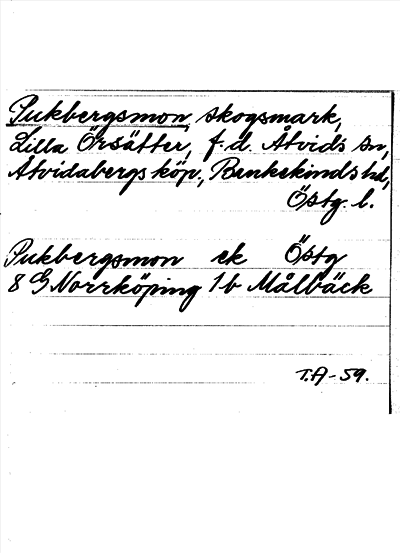 Pukbergsmon, skogsmark,
Lilla Örsätter, f.d. Åtvids sn,
Åtvidabergs köp., Bankekinds hd,
Östg. l.
Pukbergsmon ek Östg
8 G Norrköping 1b Målbäck
T.A-59.